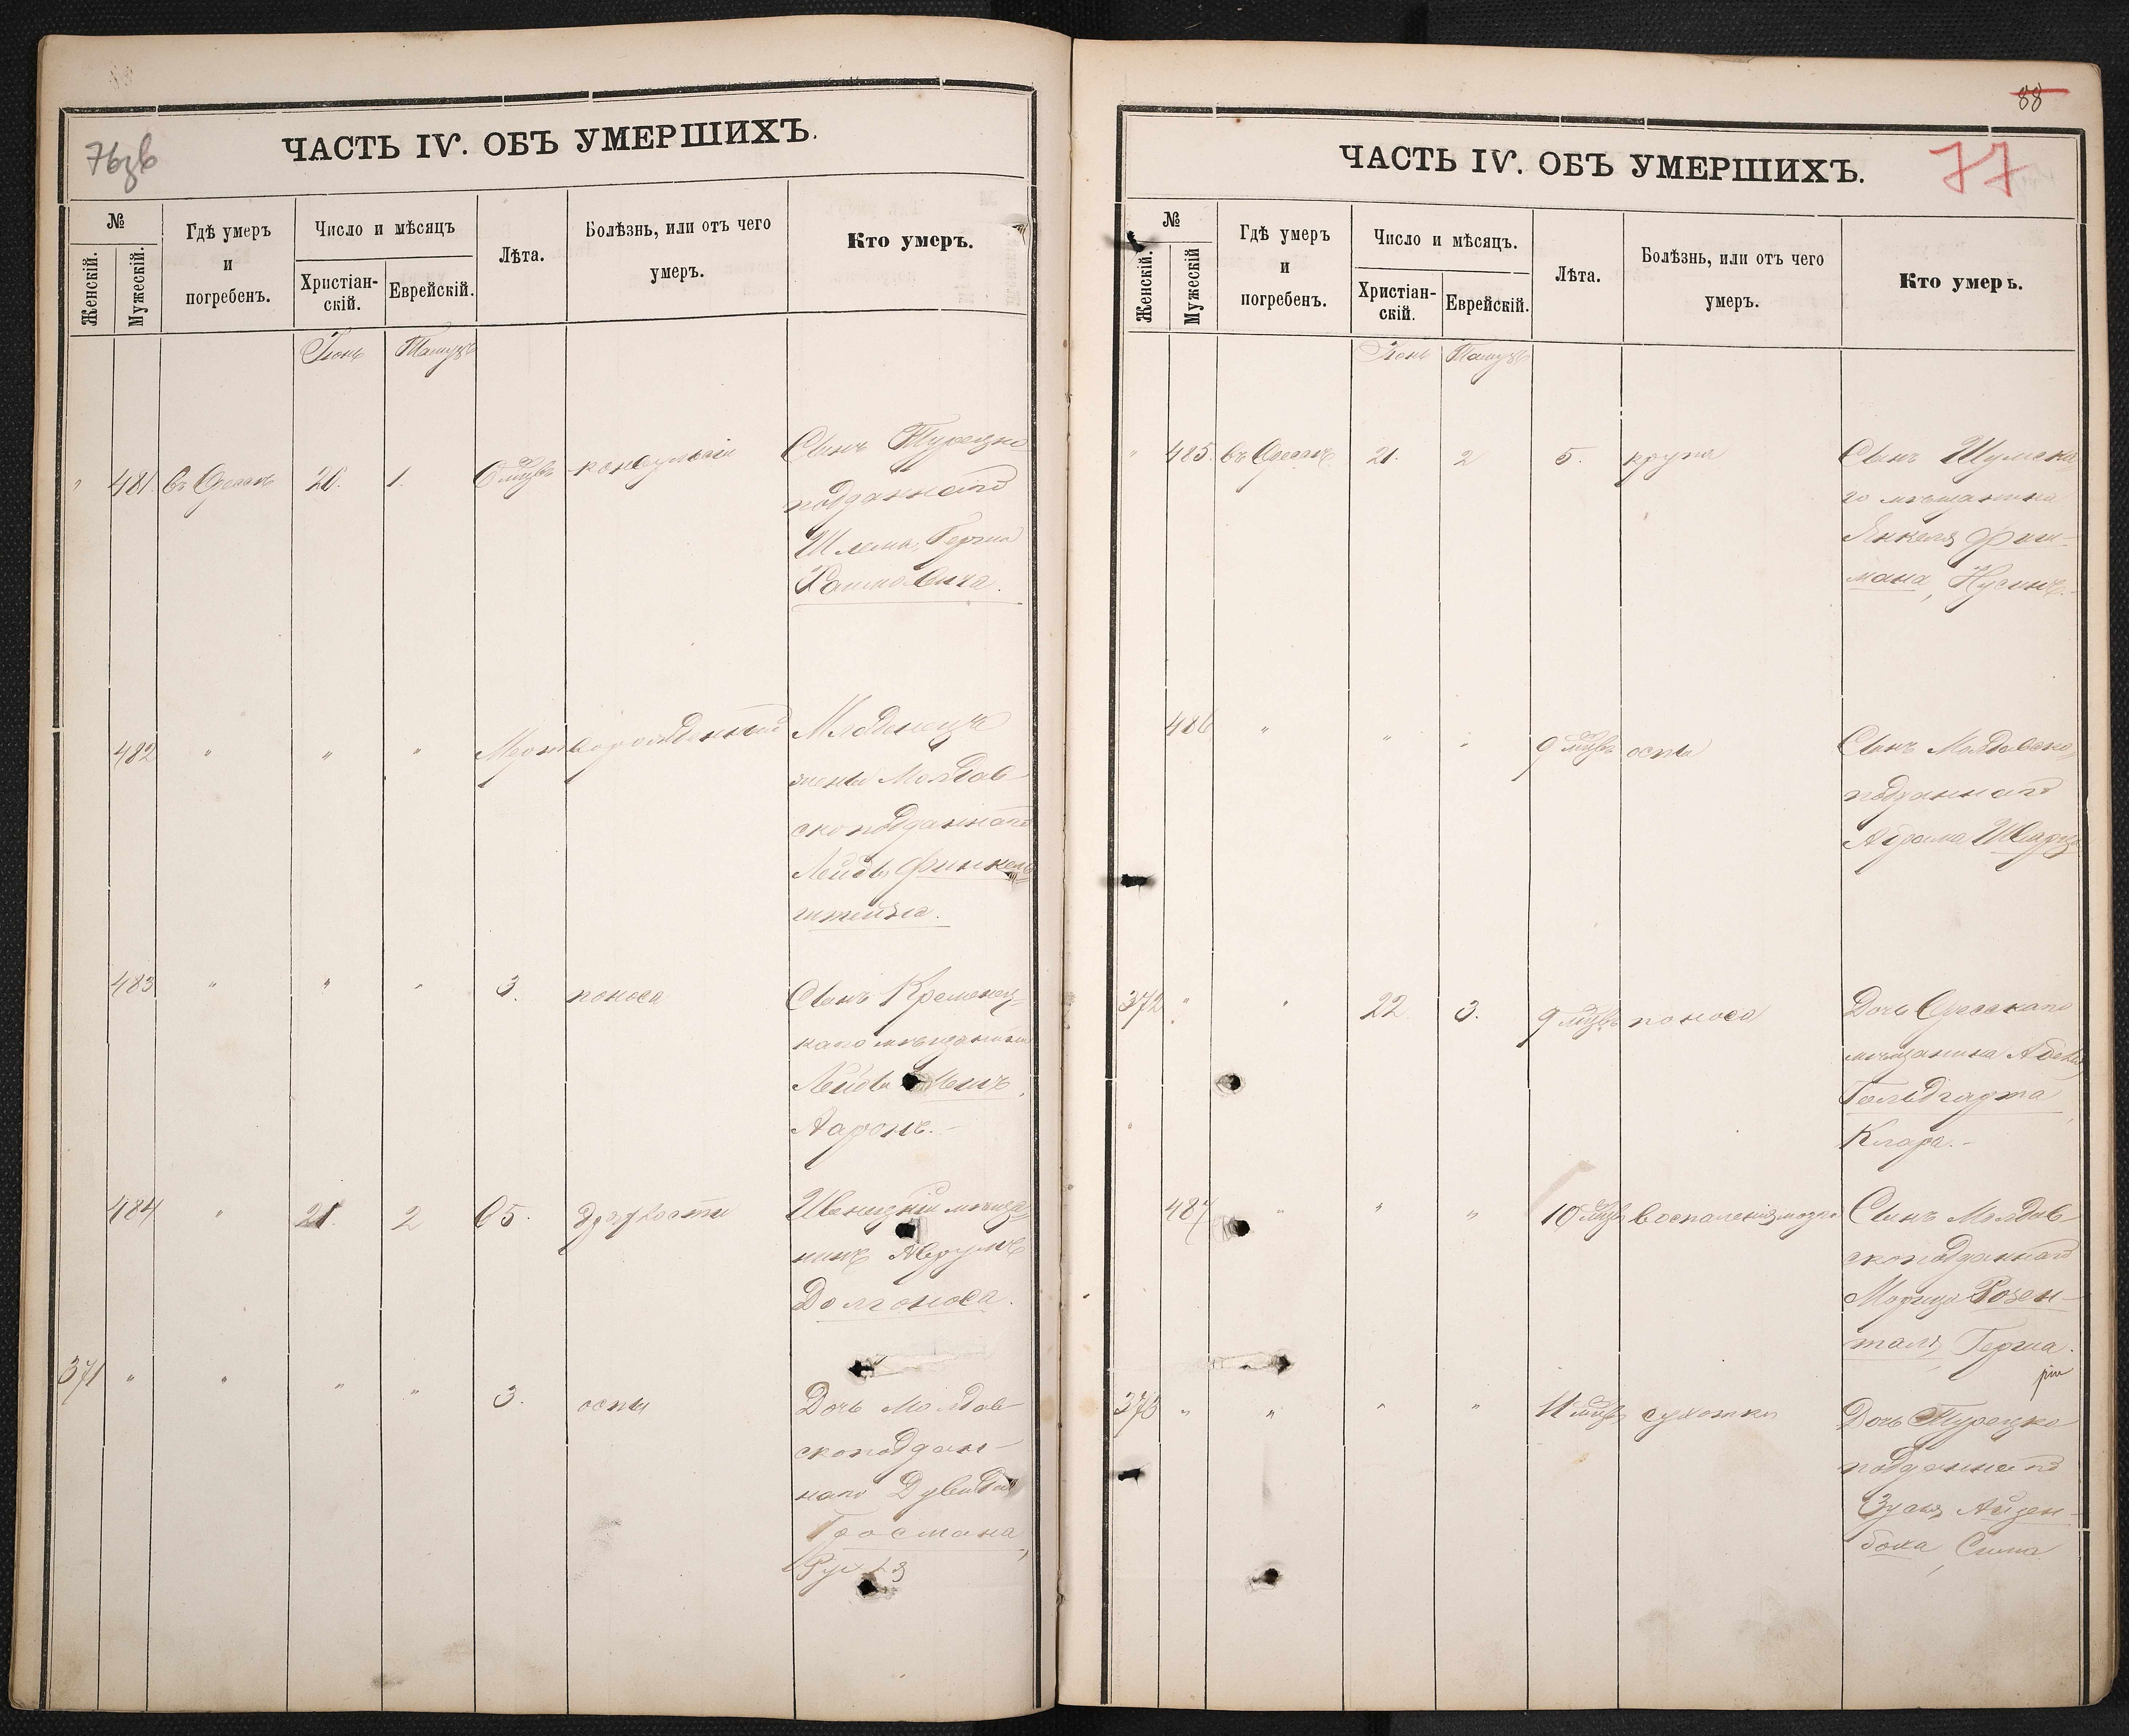 76зв
ЧАСТЬ IV. ОБЪ УМЕРШИХЪ.
№
Женскій.
Мужескій.
Гдѣ умеръ
и
погребенъ.
Число и мѣсяцъ
Христіан-
скій.
Еврейскій.
Лѣта.
Болѣзнь, или отъ чего
умеръ.
Кто умеръ.
Іюнь Тамузъ
" 481. въ Одессѣ 20. 1. 6 мцвъ конвульсіи Сынъ Турецко
подданнаго
Шлемы Герша
482 " " " Мертворожденный Младенецъ
жены Молдав-
скоподданнаго
Лейбы Финкель-
штейна.
483 " " " 3. поноса Сынъ Кременец-
каго мѣщанина
Лейбы
Ааронъ.-
484 " 21. 2 65. дряхлости мѣща-
нинъ Аврумъ
Долгоноса.
371 " " " " 3. оспы Дочь Молдав-
скоподдан-
наго Дувида
Гросмана,
Рухля
88
ЧАСТЬ IV. ОБЪ УМЕРШИХЪ.
77
№
Женскій.
Мужескій
Гдѣ умеръ
и
погребенъ.
Число и мѣсяцъ.
Христіан-
скій.
Еврейскій.
Лѣта.
Болѣзнь, или отъ чего
умеръ.
Кто умеръ.
Іюнь Тамузъ
" 485. въ Одессѣ 21. 2 5. крупа Сынъ Шумска
го мѣщанина
Янкеля Фиш-
мана, Нусинъ.-
486 " " " 9 мцвъ оспы Сынъ Молдавско
подданнаго
Абрама Шварца
372 " " 22. 3. 9 мцвъ поноса Дочь Одесскаго
мѣщанина
Гольдгарта,
Клара.-
487 " " " 10 мцвъ воспаленія мозга Сынъ Молдав-
скоподданнаго
Морица Розен-
таля, Герша.
373 " " " " 11 мцвъ сухотки Дочь Турецко
подданнаго
Зуся Айзен-
бока, Сима